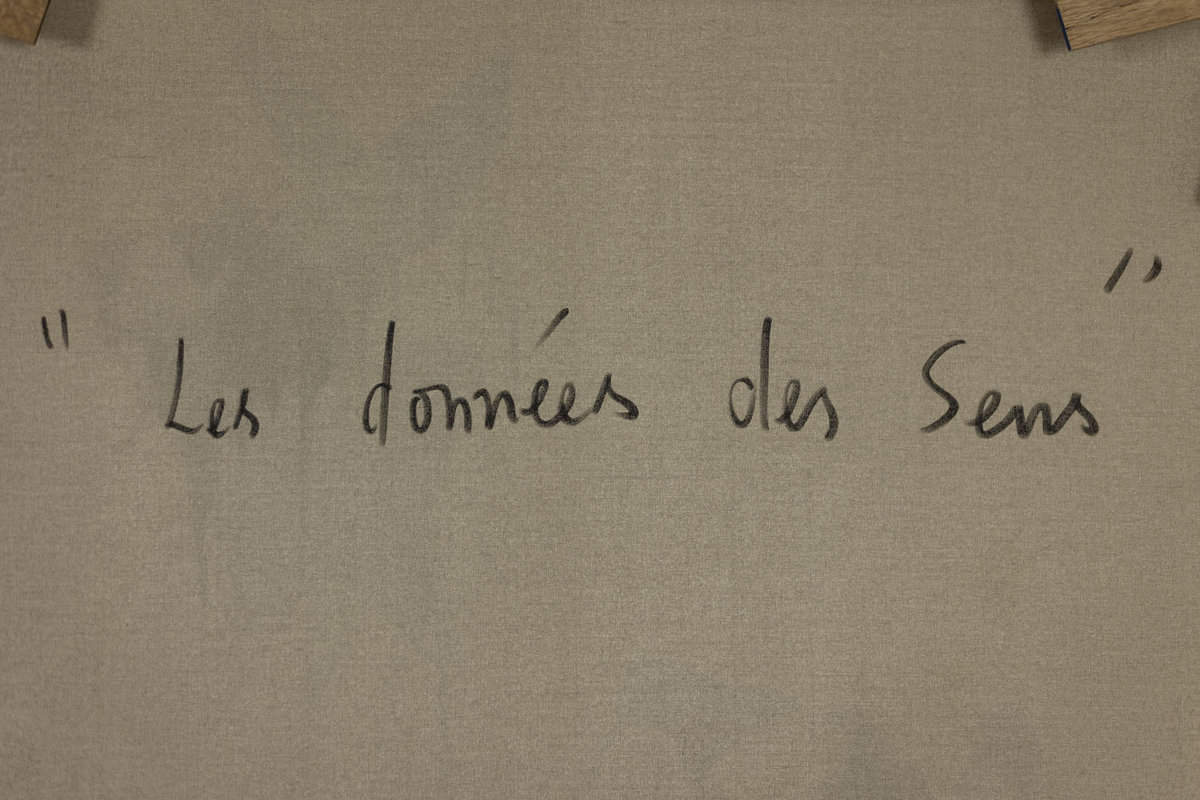 "Les données des Sens"